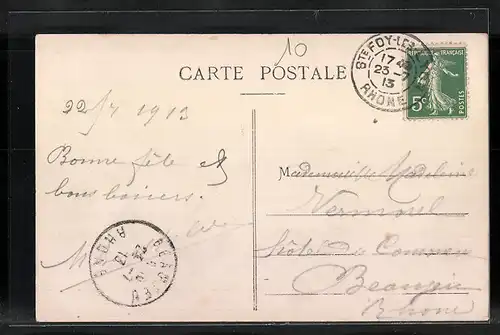 10
CARTE POSTALE
STE FOY-LES-
17 45
23 -7
13
RHONE
5c
POSTES
22/7 1913
Bonne fête et
bons baisers.
Mademoiselle Madeleine
Vermorel
hôtel du Commerce
Beaujeu
Rhône
BEAUJEU
RHONE